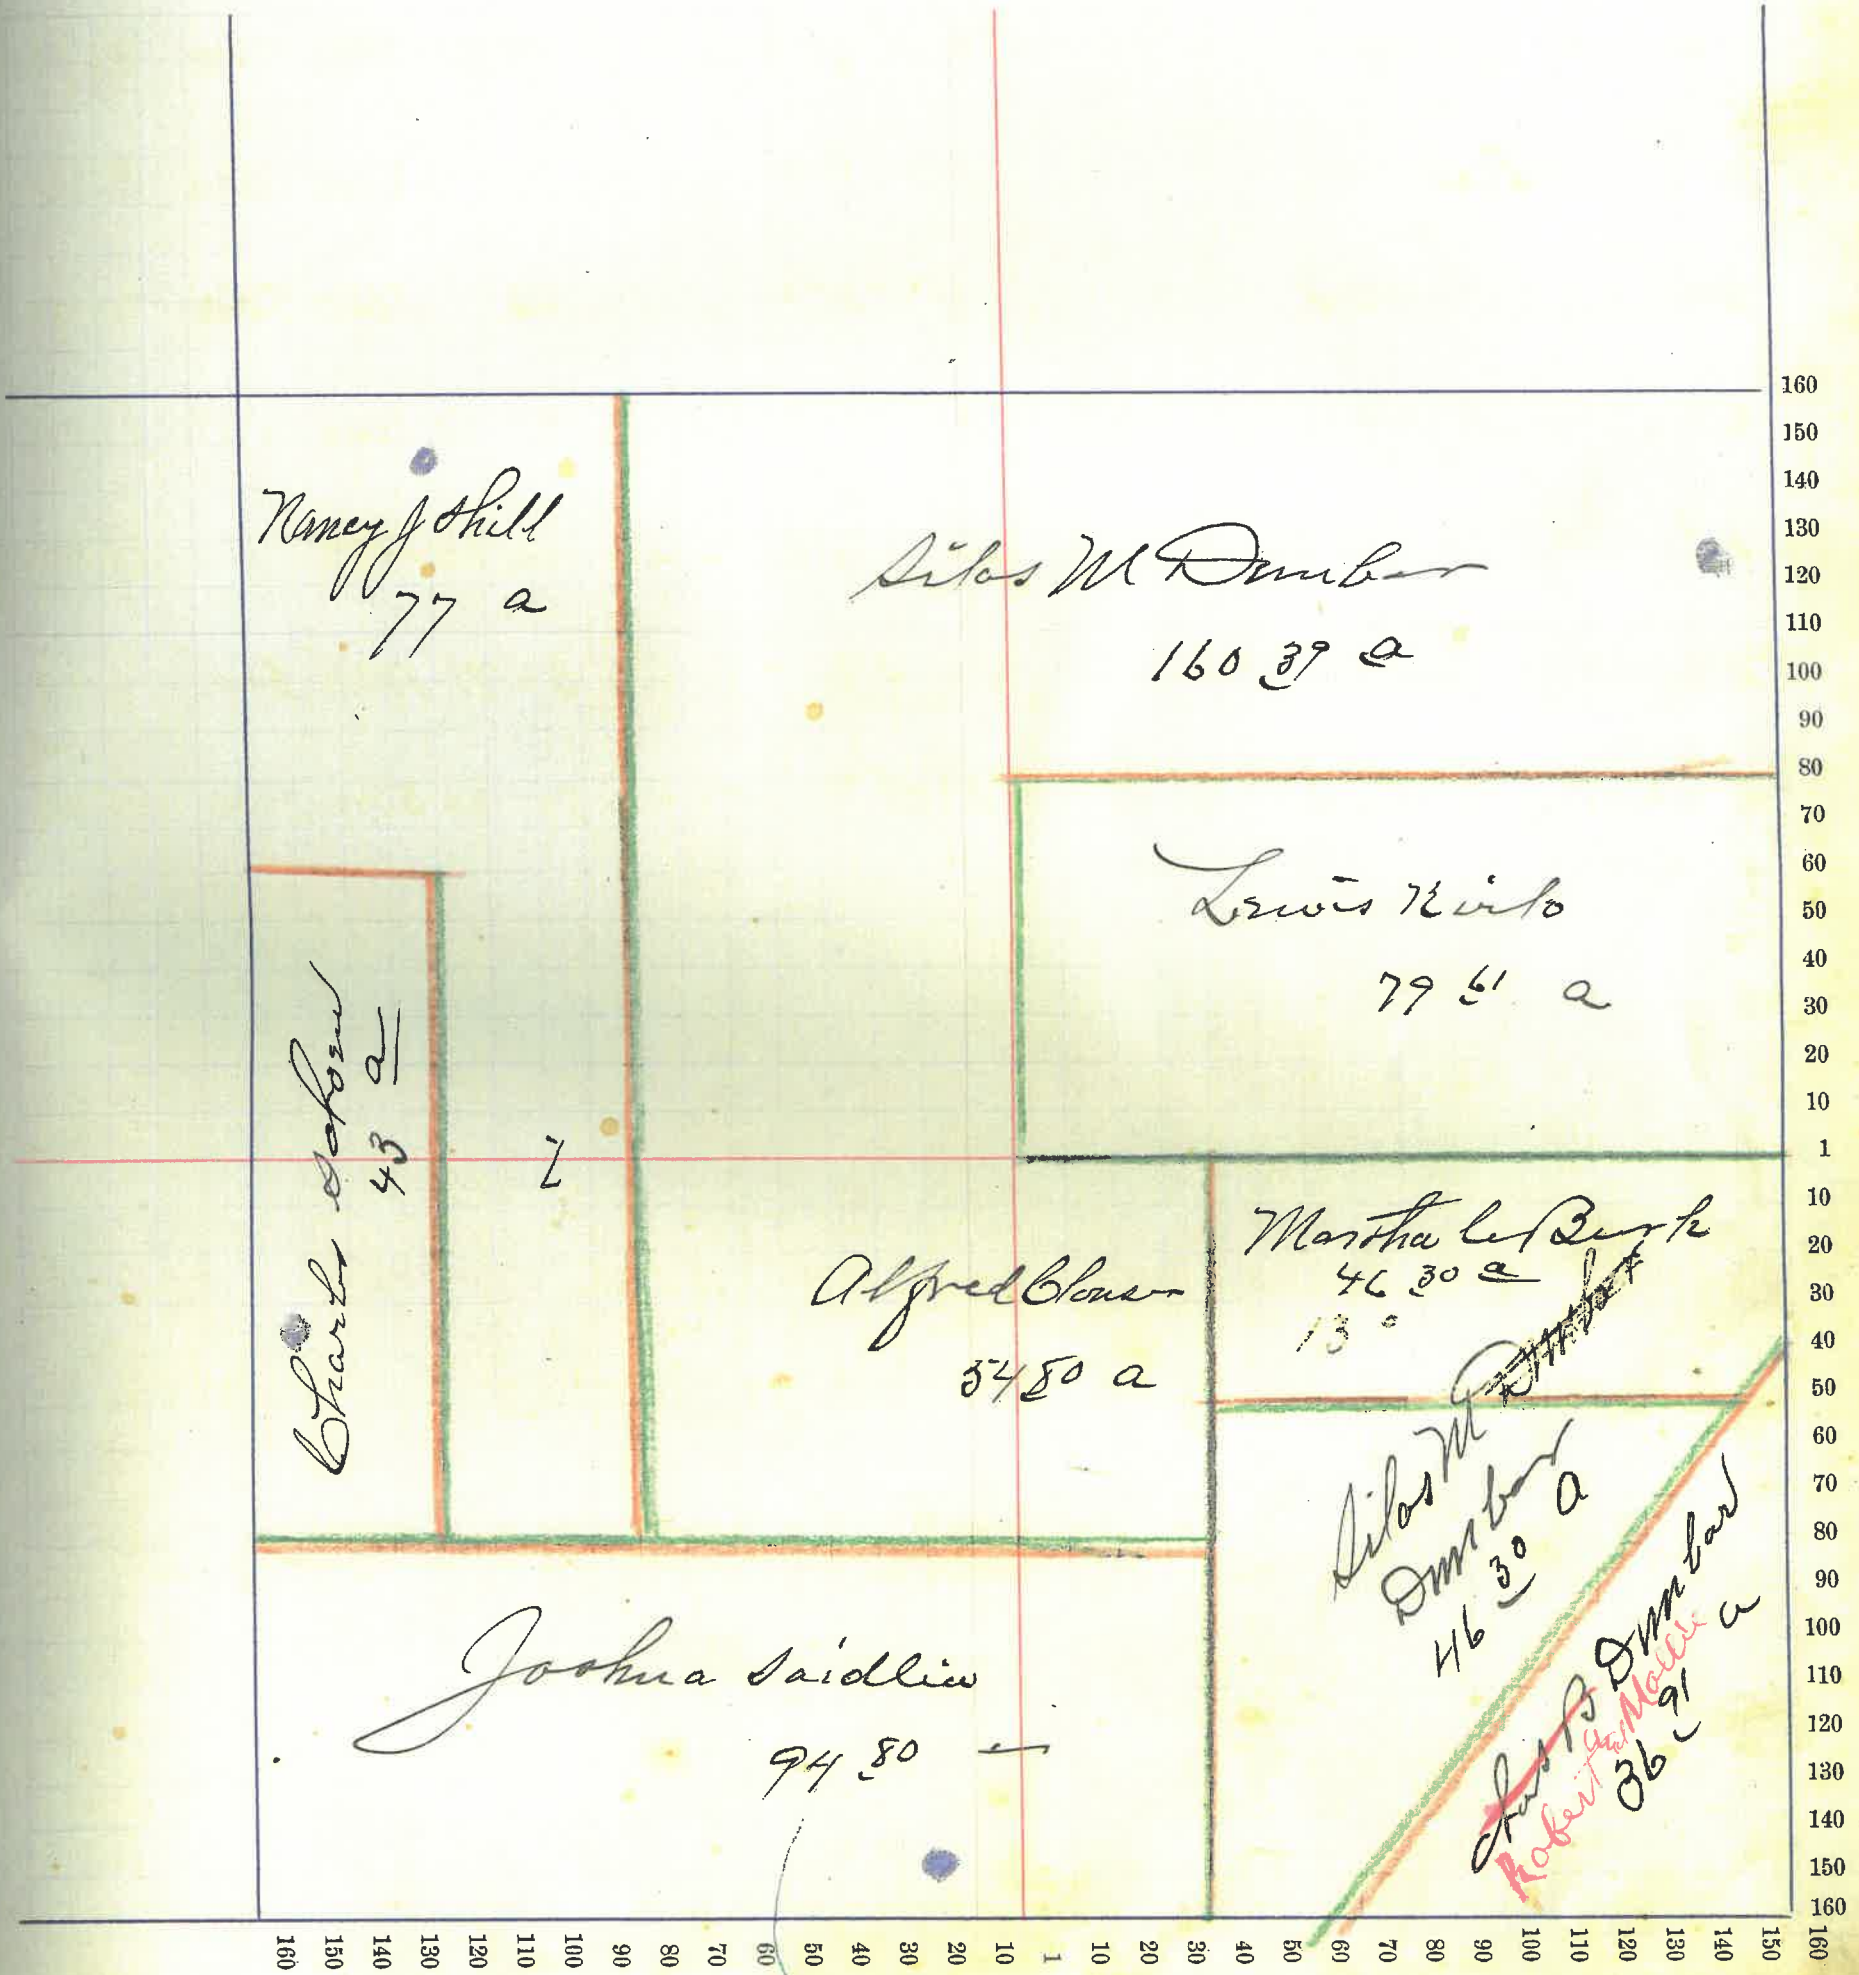 Nancy J Hill
77 a
Silas M Dunbar
160 39 a
Lewis
79 61 a
Charles
43 a
Z
Alfred Clouser
54 80 a
Martha C Burk
46 30 a
13
Silas M Dunbar
Dunbar
46 30 a
Joshua Saidlin
94 80
Jas B Dunbar
Robert
36 91 a
160
150
140
130
120
110
100
90
80
70
60
50
40
30
20
10
1
10
20
30
40
50
60
70
80
90
100
110
120
130
140
150
160
160 150 140 130 120 110 100 90 80 70 60 50 40 30 20 10 1 10 20 30 40 50 60 70 80 90 100 110 120 130 140 150 160